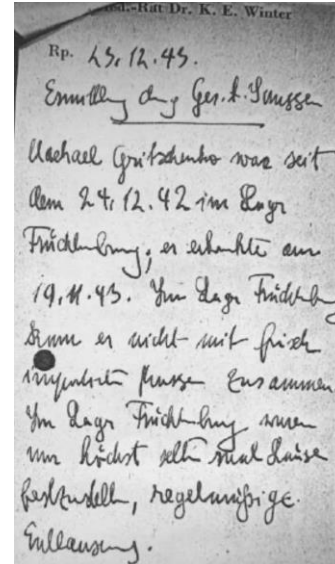 Med.-Rat Dr. K. E. Winter
Rp. 23.12.43.
Ermittlung dug Ges. A. Janssen
Michael Gritschenko war seit
dem 24.12.42 im Lager
Früchtenburg; er erkrankte am
19.11.43. Im Lager Früchtenburg
kam er nicht mit frisch
importierten Russen zusammen
Im Lager Früchtenburg waren
nur höchst selten mal Läuse
festzustellen, regelmäßige
Entlausung.